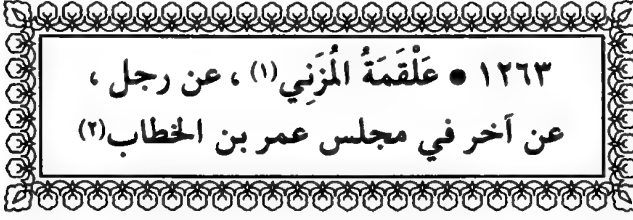 ١٢٦٣ ● عَلْقَمَةُ الْمُزَنِي(١) ، عن رجل ،
عن آخر في مجلس عمر بن الخطاب(٢)